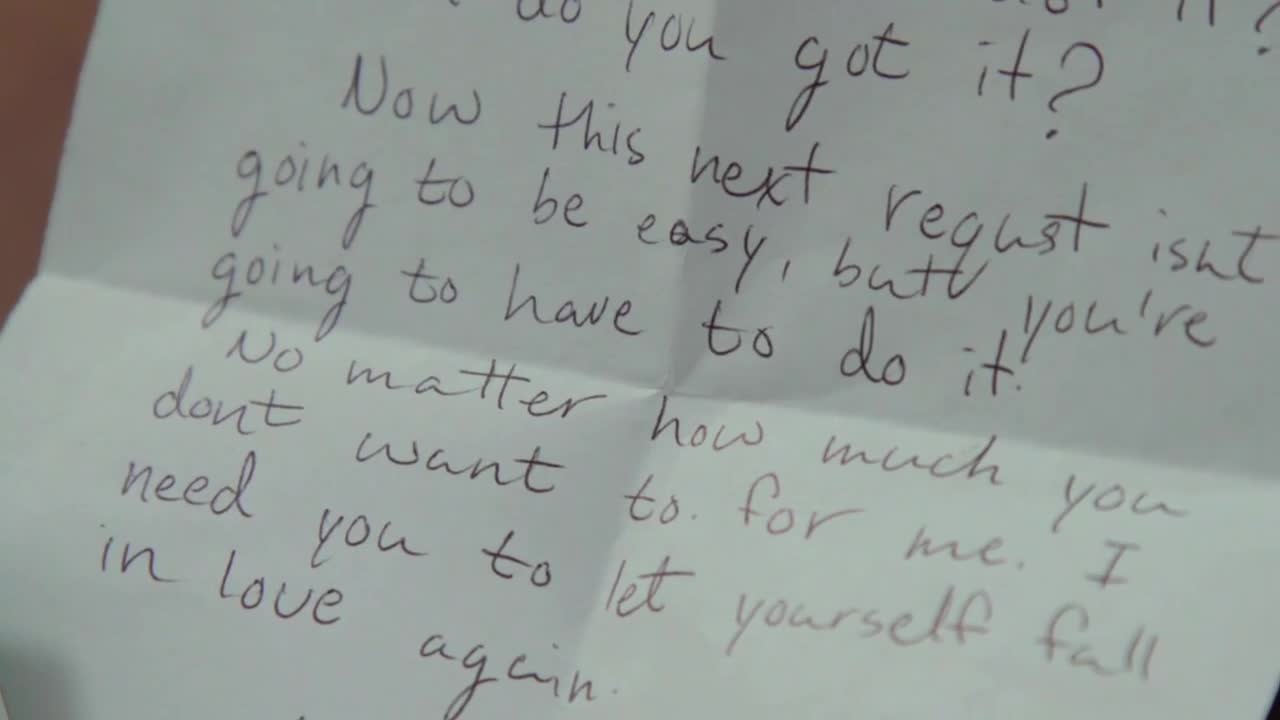 do you got it?
Now this next requst isnt
going to be easy, but you're
going to have to do it!
No matter how much you
dont want to. for me. I
need you to let yourself fall
in love again.